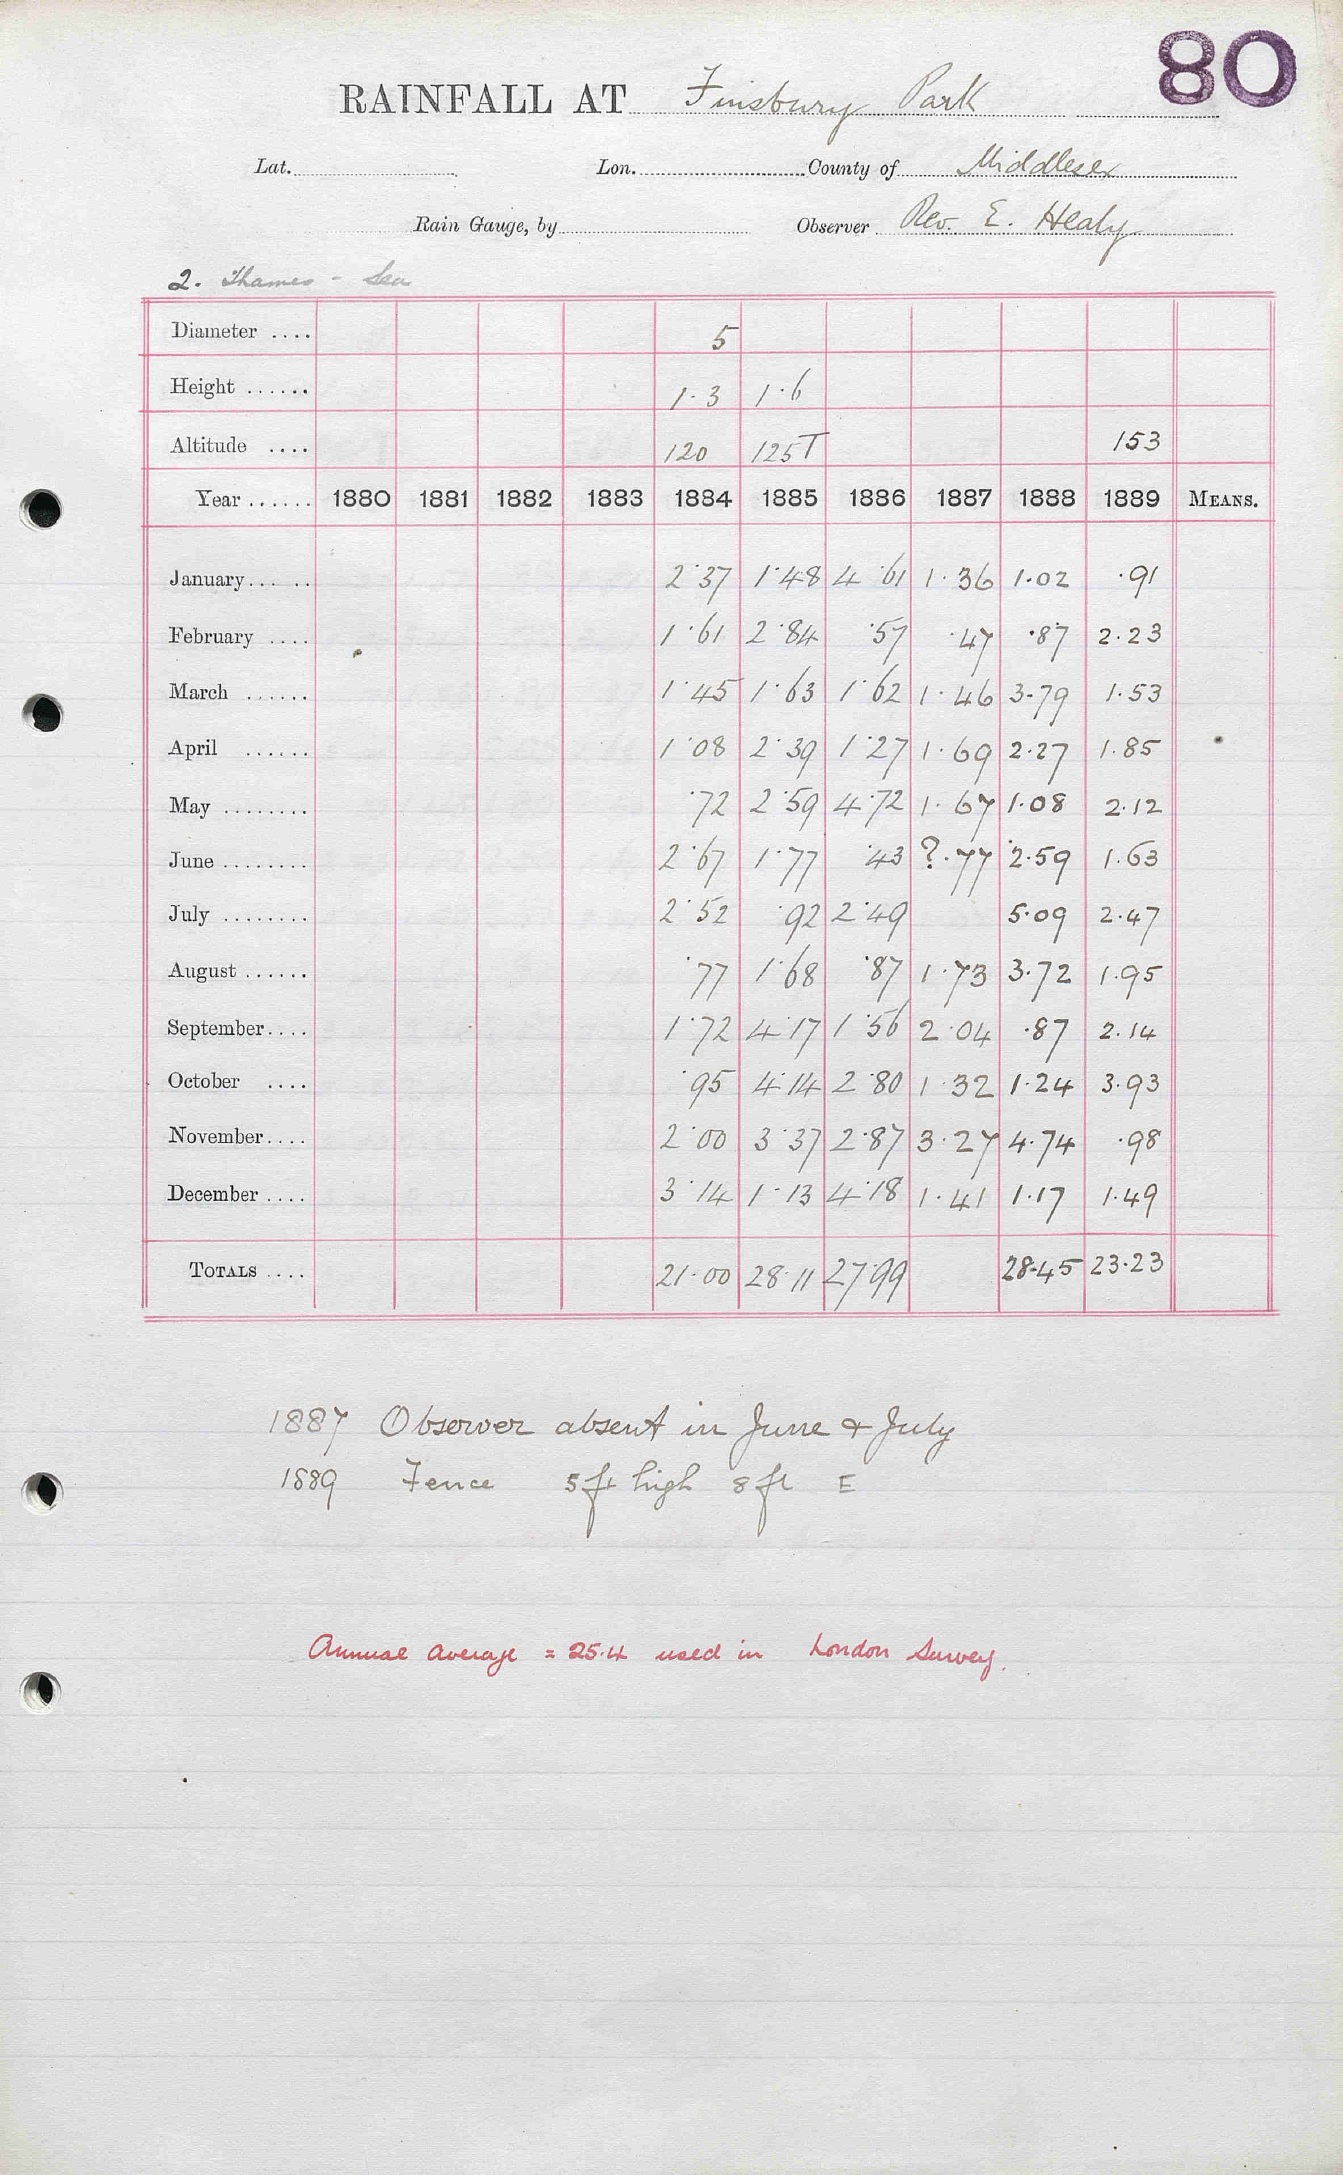 80
RAINFALL AT Finsbury Park
Lat. Lon. County of Middlesex
Rain Gauge, by Observer Rev. E. Healy
2. Thames - Sea
Diameter .... 5
Height ...... 1.3 1.6
Altitude .... 120 125T 153
Year ...... 1880 1881 1882 1883 1884 1885 1886 1887 1888 1889 MEANS.
January... .. 2.37 1.48 4.61 1.36 1.02 .91
February .... 1.61 2.84 .57 .47 .87 2.23
March ...... 1.45 1.63 1.62 1.46 3.79 1.53
April ...... 1.08 2.39 1.27 1.69 2.27 1.85
May ........ .72 2.59 4.72 1.67 1.08 2.12
June ........ 2.67 1.77 .43 ?.77 2.59 1.63
July ........ 2.52 .92 2.49 5.09 2.47
August ...... .77 1.68 .87 1.73 3.72 1.95
September.... 1.72 4.17 1.56 2.04 .87 2.14
October .... .95 4.14 2.80 1.32 1.24 3.93
November.... 2.00 3.37 2.87 3.27 4.74 .98
December .... 3.14 1.13 4.18 1.41 1.17 1.49
TOTALS .... 21.00 28.11 27.99 28.45 23.23
1887 Observer absent in June & July
1889 Fence 5ft high 8ft E
Annual average = 25.4 used in London Survey.